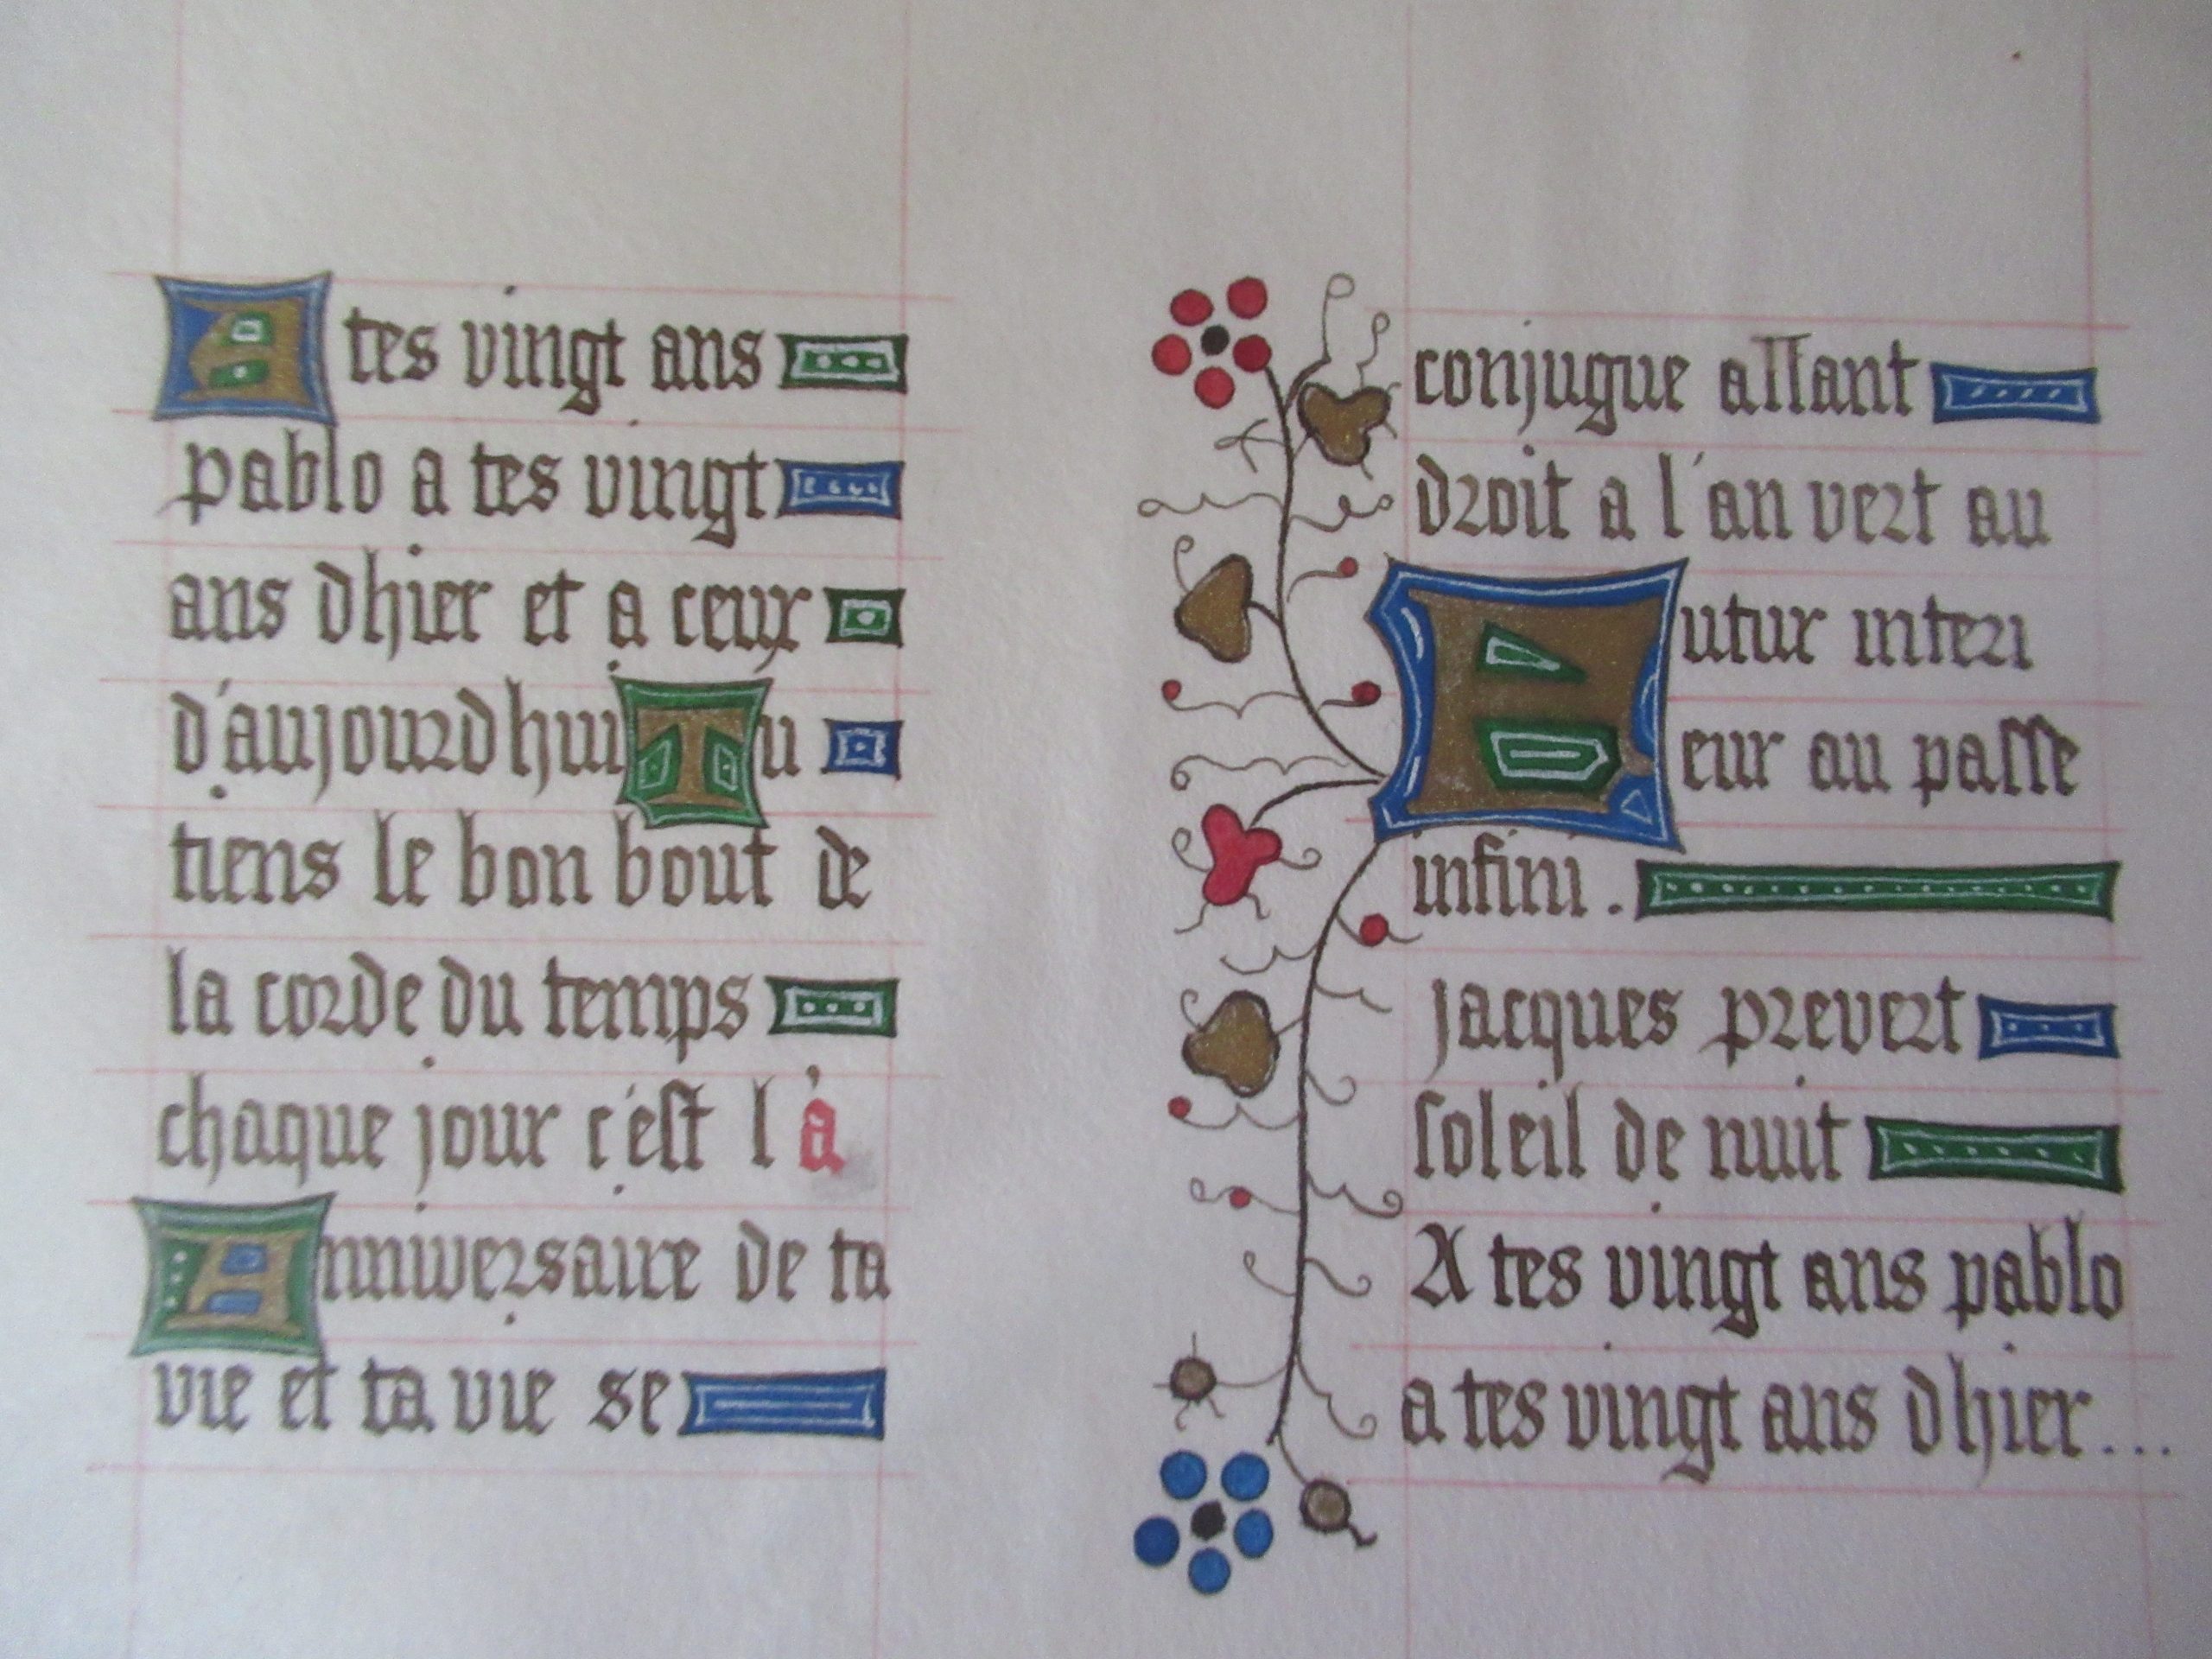 A tes vingt ans
pablo a tes vingt
ans dhier et a ceux
d'aujourdhui Tu
tiens le bon bout de
la corde du temps
chaque jour c'est l à
Anniversaire de ta
vie et ta vie se
conjugue allant
droit a l'an vert au
utur interi
eur au passe
infini.
jacques prevert
soleil de nuit
A tes vingt ans pablo
a tes vingt ans dhier...